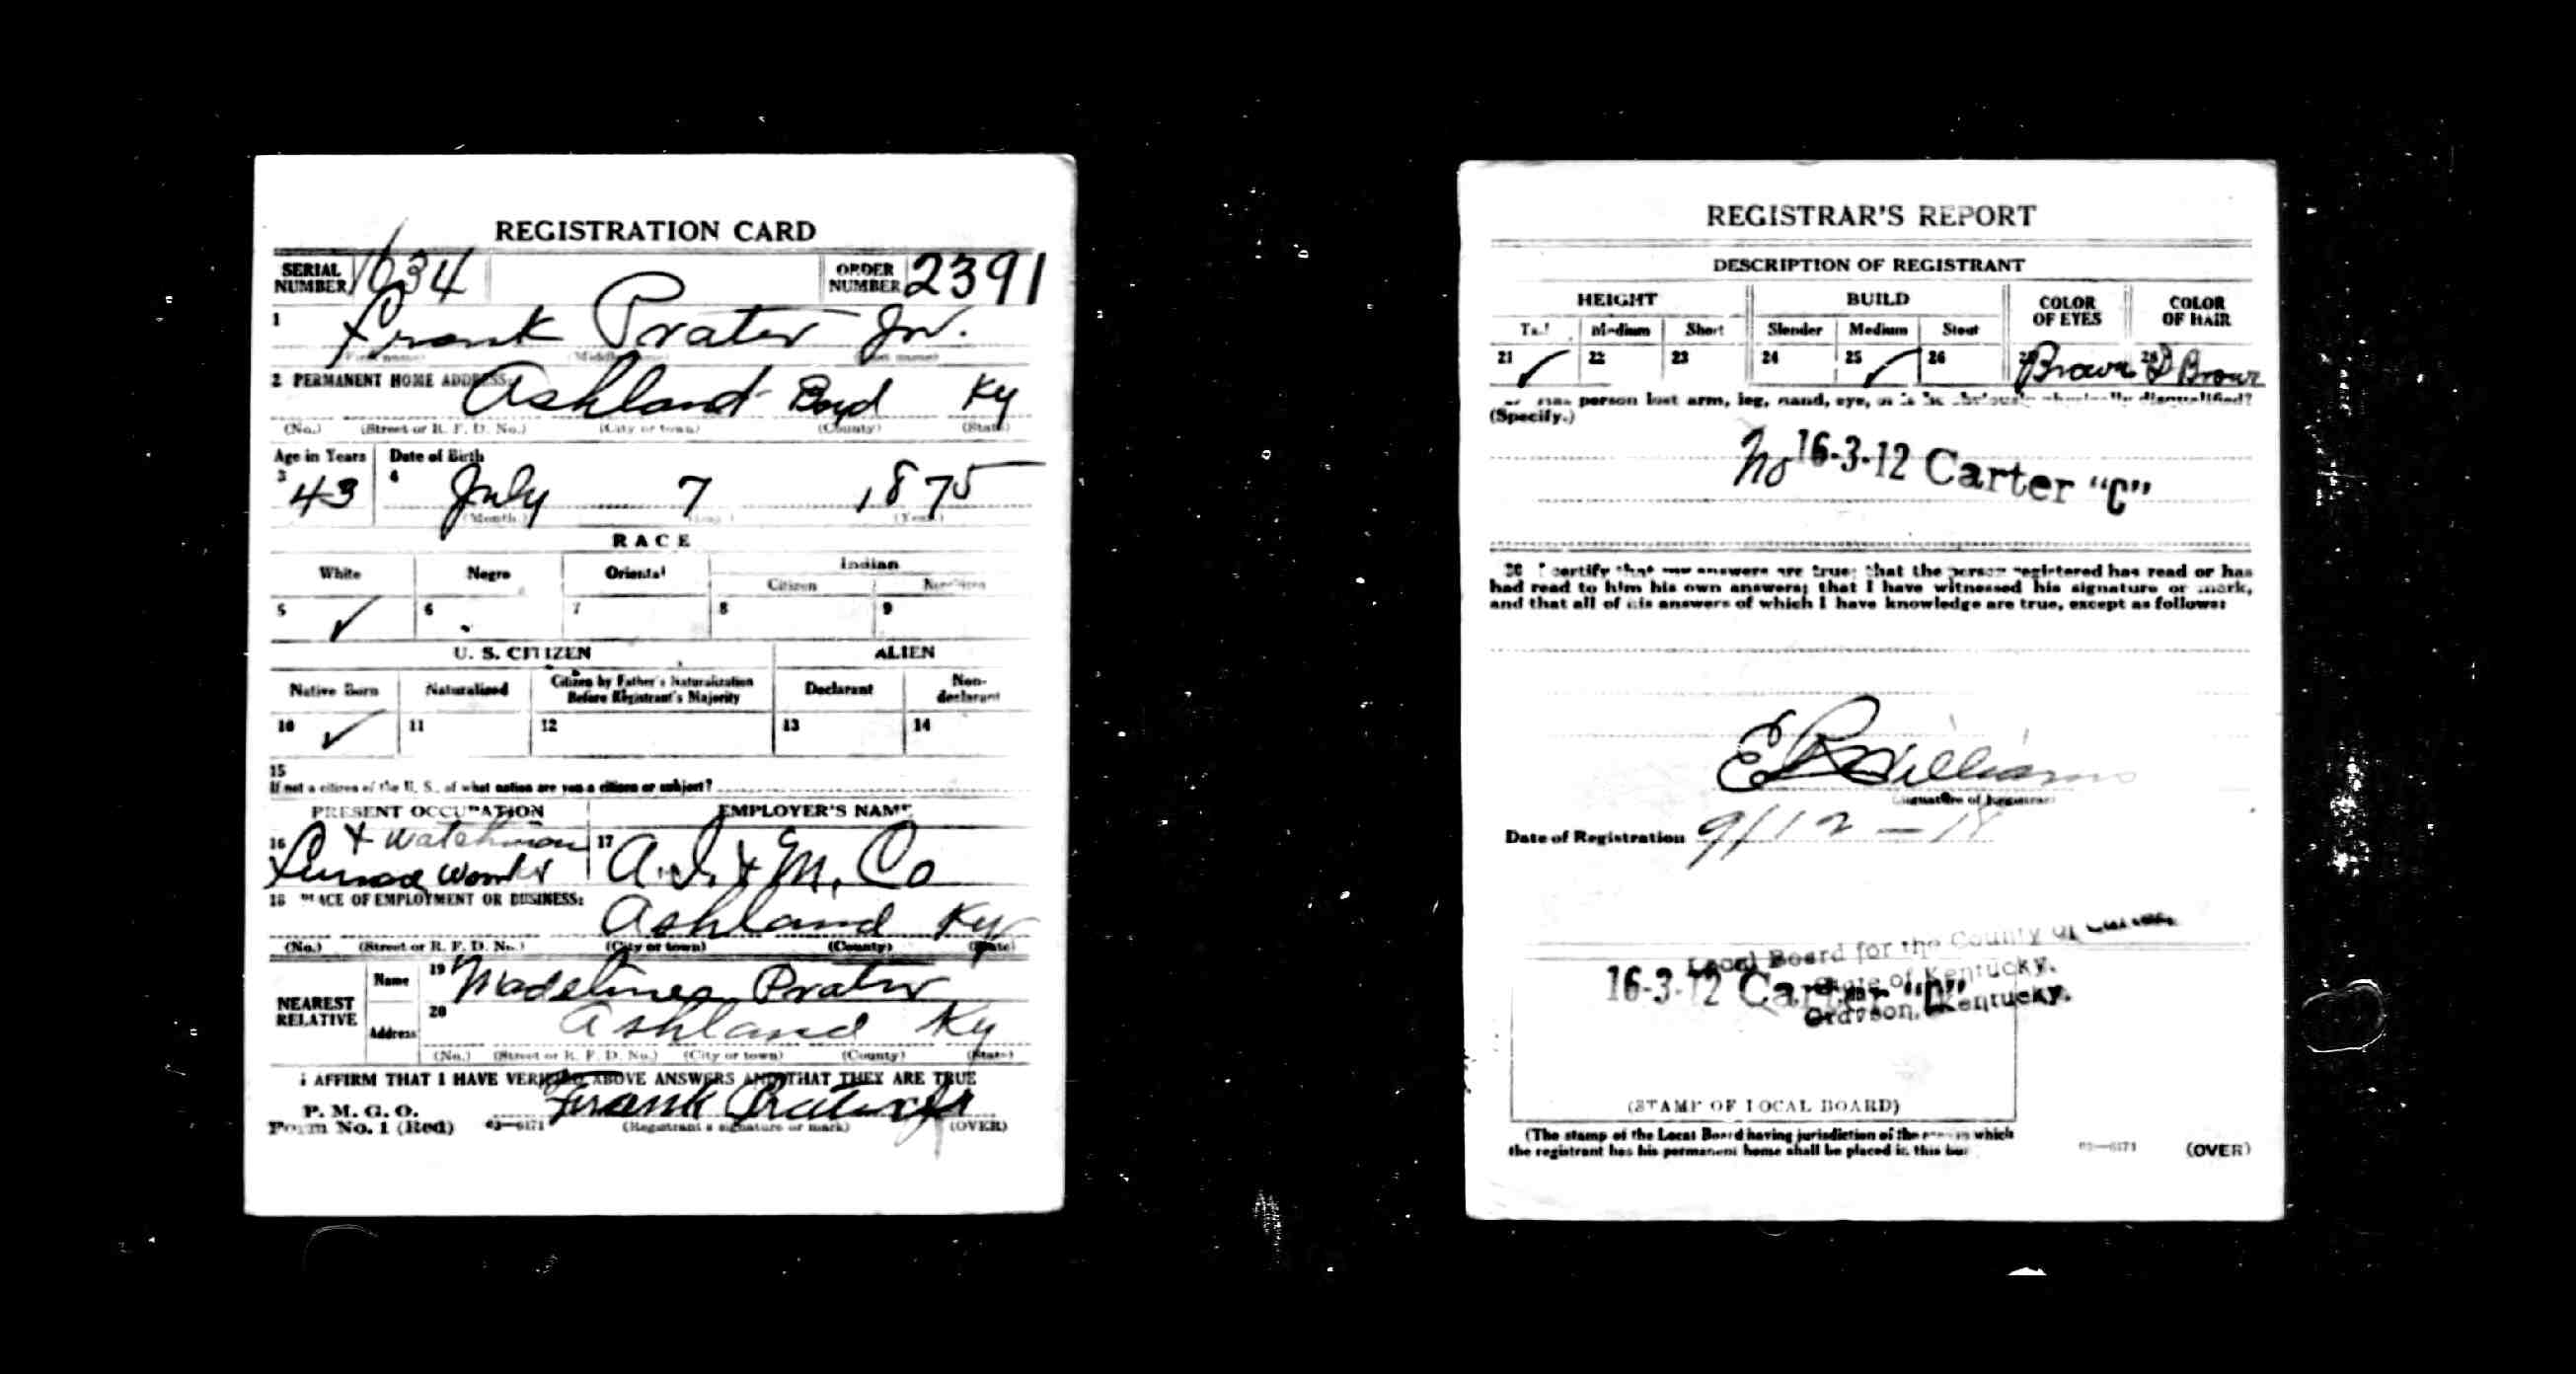 REGISTRATION CARD
SERIAL NUMBER 1634 ORDER NUMBER 2391
1 Frank Prater Jr.
(First name) (Middle name) (Last name)
2 PERMANENT HOME ADDRESS:
Ashland Boyd Ky
(No.) (Street or R. F. D. No.) (City or town) (County) (State)
Age in Years Date of Birth
3 43 4 July 7 1875
(Month.) (Day.) (Year.)
RACE
White Negro Oriental Indian
Citizen Noncitizen
5 ✓ 6 7 8 9
U. S. CITIZEN ALIEN
Native Born Naturalized Citizen by Father's Naturalization Before Registrant's Majority Declarant Non-declarant
10 ✓ 11 12 13 14
15
If not a citizen of the U. S., of what nation are you a citizen or subject?
PRESENT OCCUPATION EMPLOYER'S NAME
16 & Watchman 17 A. I. & M. Co
18 PLACE OF EMPLOYMENT OR BUSINESS:
Ashland Ky
(No.) (Street or R. F. D. No.) (City or town) (County) (State)
NEAREST RELATIVE
Name 19 Madeline Prater
Address 20 Ashland Ky
(No.) (Street or R. F. D. No.) (City or town) (County) (State)
I AFFIRM THAT I HAVE VERIFIED ABOVE ANSWERS AND THAT THEY ARE TRUE
P. M. G. O.
Form No. 1 (Red) 03—6171 Frank Prater Jr
(Registrant's signature or mark) (OVER)
REGISTRAR'S REPORT
DESCRIPTION OF REGISTRANT
HEIGHT BUILD COLOR OF EYES COLOR OF HAIR
Tall Medium Short Slender Medium Stout
21 ✓ 22 23 24 25 ✓ 26 27 Brown 28 D Brown
person lost arm, leg, hand, eye, or is he obviously physically disqualified?
(Specify.)
No 16-3-12 Carter "C"
30 I certify that my answers are true; that the person registered has read or has
had read to him his own answers; that I have witnessed his signature or mark,
and that all of his answers of which I have knowledge are true, except as follows:
Williams
(Signature of Registrar)
Date of Registration 9/12-18
Local Board for the County of Carter,
State of Kentucky.
Grayson, Kentucky.
16-3-12 Carter
(STAMP OF LOCAL BOARD)
(The stamp of the Local Board having jurisdiction of the area in which
the registrant has his permanent home shall be placed in this box.
03—6171 (OVER)